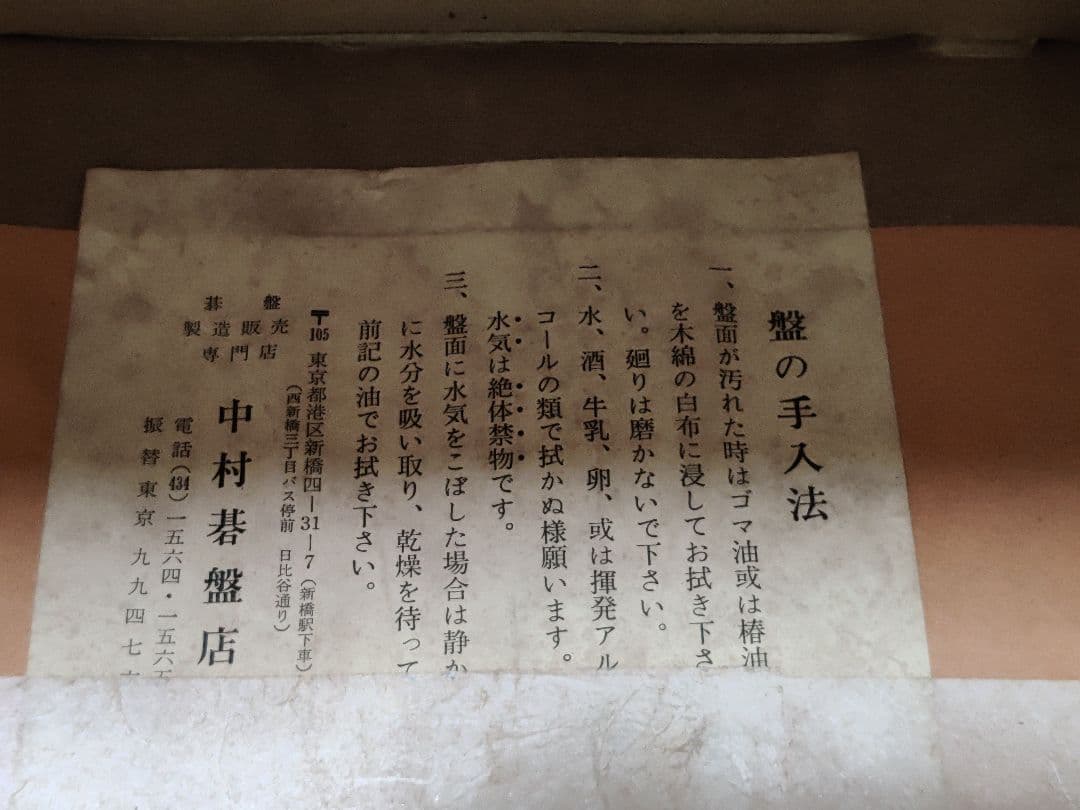 盤の手入法
一、盤面が汚れた時はゴマ油或は椿油
を木綿の白布に浸してお拭き下さ
い。廻りは磨かないで下さい。
二、水、酒、牛乳、卵、或は揮発アル
コールの類で拭かぬ様願います。
水気は絶体禁物です。
三、盤面に水気をこぼした場合は静か
に水分を吸い取り、乾燥を待って
前記の油でお拭き下さい。
〒105 東京都港区新橋四—31—7（新橋駅下車）
（西新橋三丁目バス停前 日比谷通り）
碁盤
製造販売
専門店
中村碁盤店
電話（434）一五六四・一五六五
振替東京 九九四七